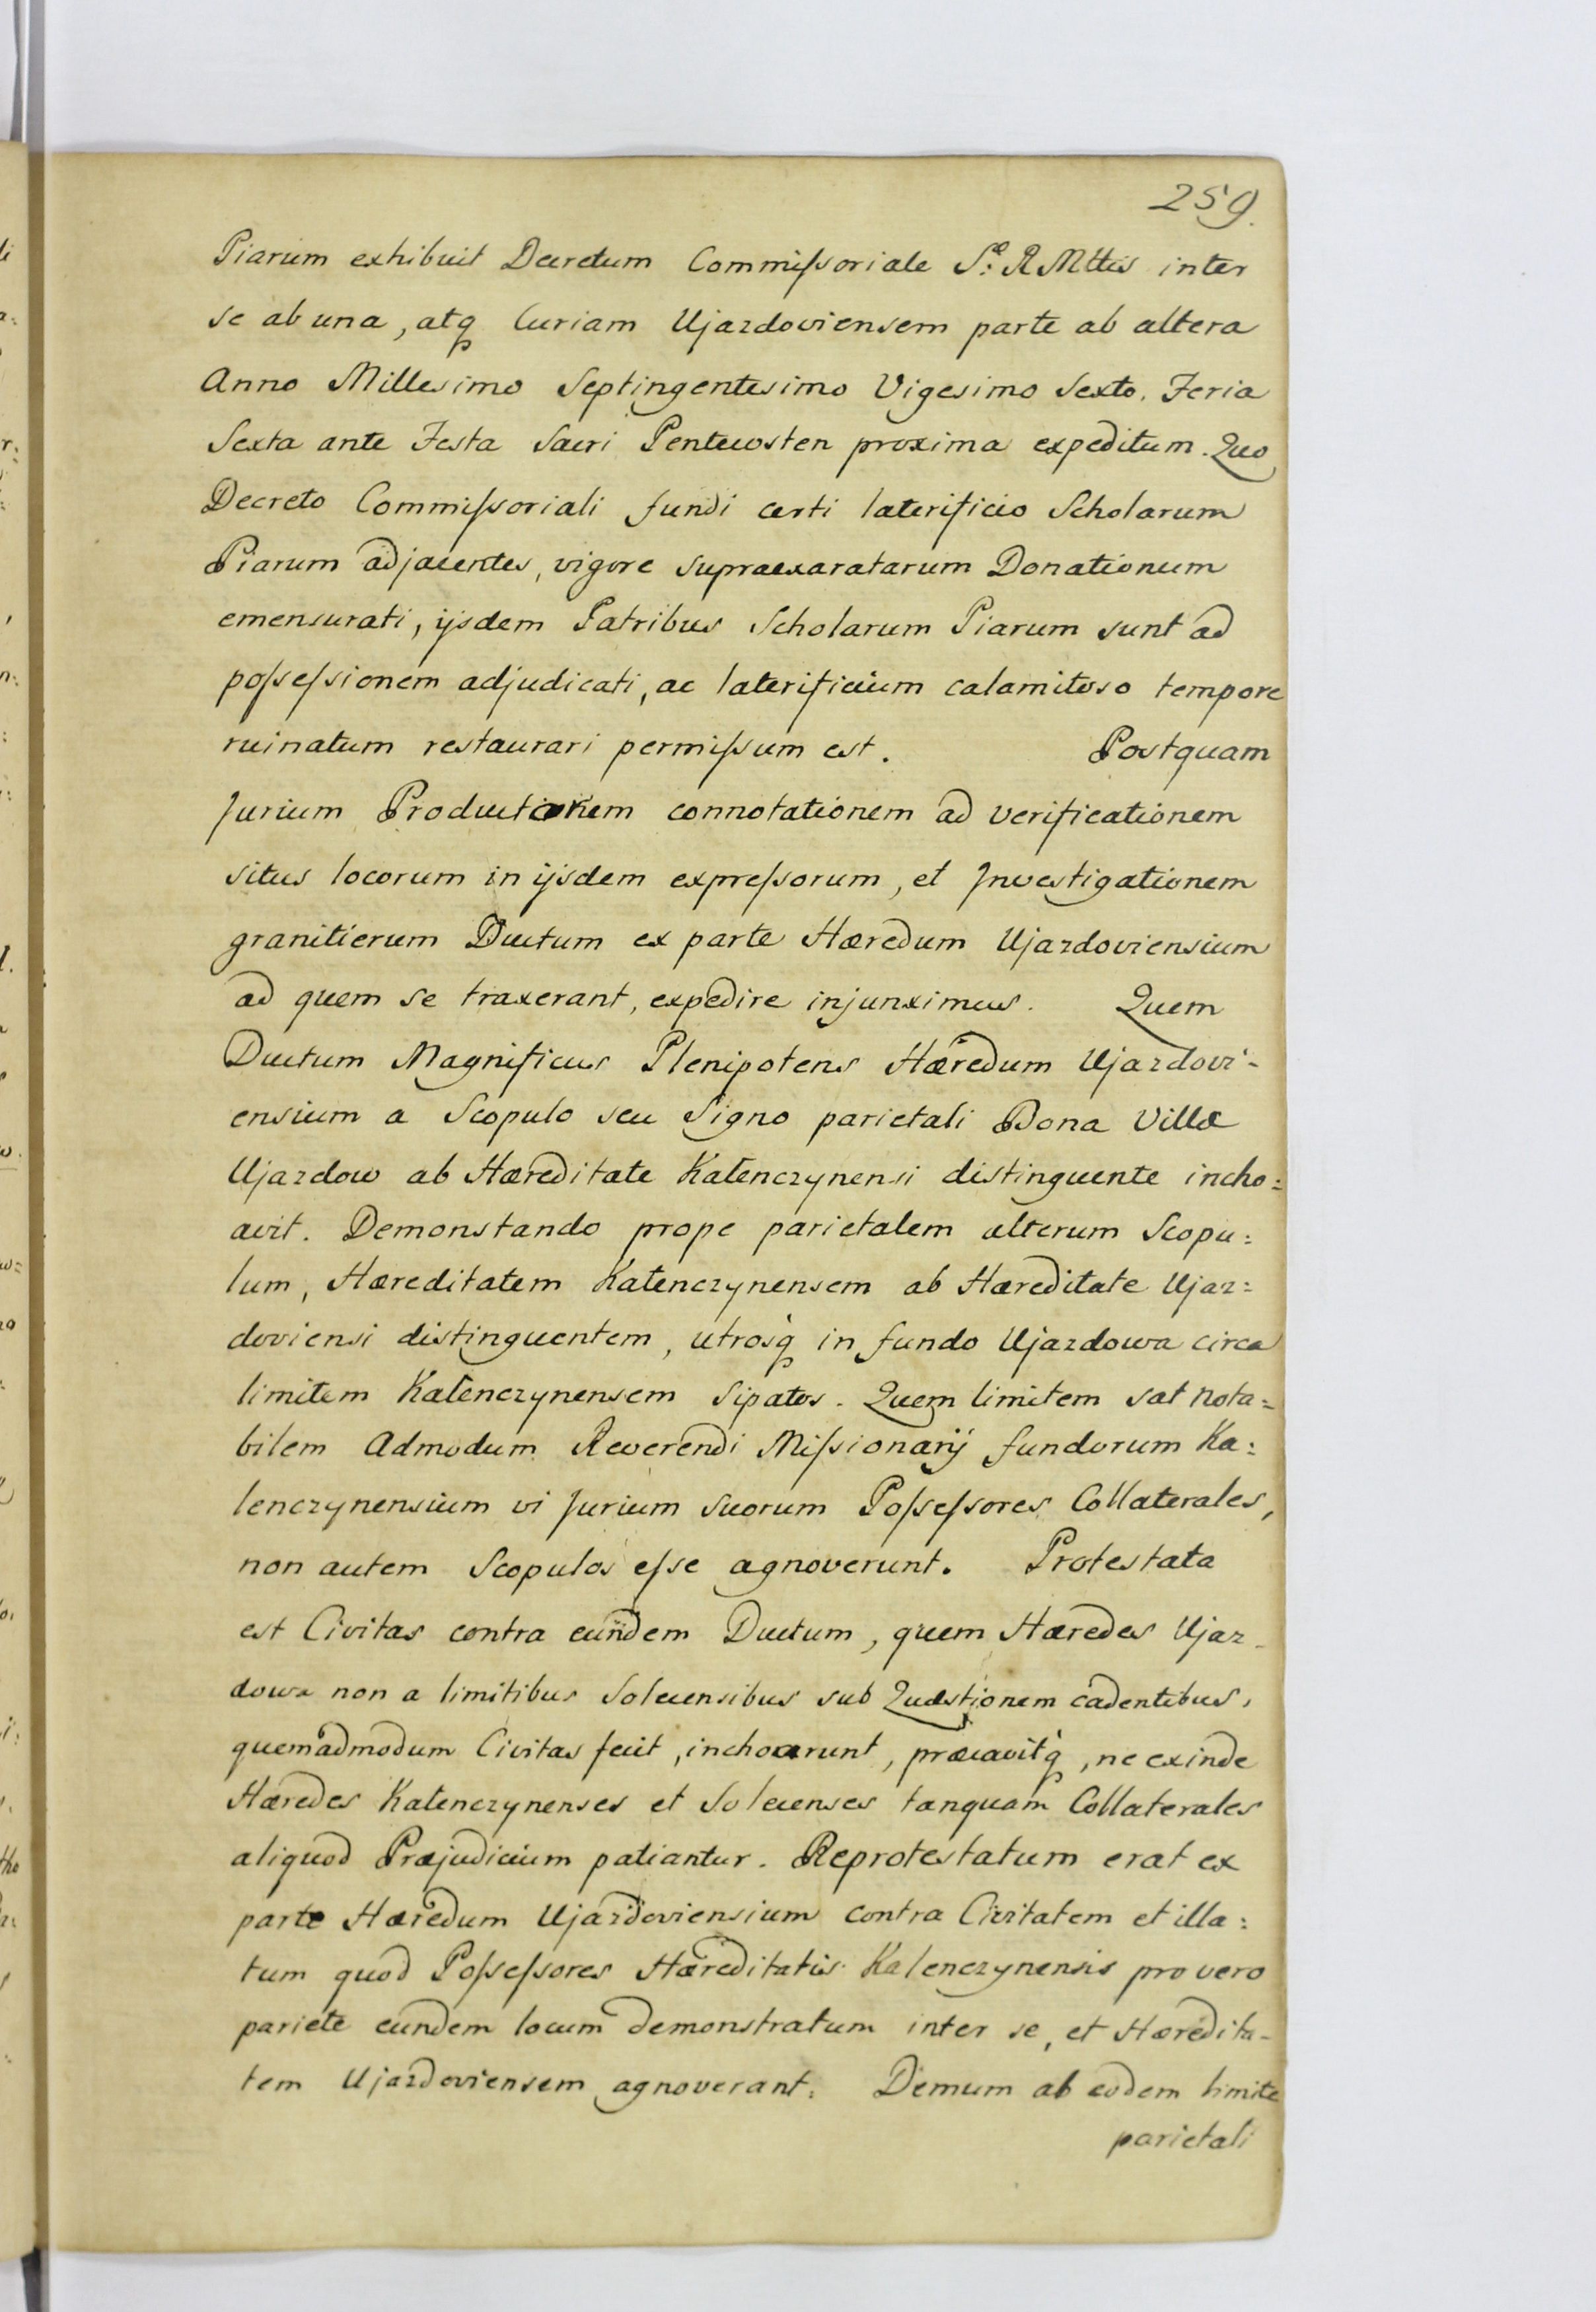 259.
Piarum exhibuit Decretum Commiſsoriale S: R Mttis inter
se ab una, atq Curiam Ujazdoviensem parte ab altera
Anno Millesimo Septingentesimo Vigesimo Sexto. Feria
Sexta ante Festa Sacri Pentecosten proxima expeditum. Quo
Decreto Commiſsoriali fundi certi laterificio Scholarum
Piarum adjacentes, vigore supraexaratarum Donationum
emensurati, ijsdem Patribus Scholarum Piarum sunt ad
poſseſsionem adjudicati, ac laterificium calamitoso tempore
ruinatum restaurari permiſsum est. Postquam
Jurium Productionem connotationem ad verificationem
situs locorum in ijsdem expreſsorum, et Investigationem
granitierum Ductum ex parte Hæredum Ujazdoviensium
ad quem se traxerant, expedire injunximus. Quem
Ductum Magnificus Plenipotens Hæredum Ujazdovi-
ensium a Scopulo seu Signo parietali Bona Villæ
Ujazdow ab Hæreditate Kałenczynensi distinguente incho=
avit. Demonstando prope parietalem alterum Scopu:
lum, Hæreditatem Kałenczynensem ab Hæreditate Ujaz:
doviensi distinguentem, utrosq in fundo Ujazdowa circa
limitem Kałenczynensem Sipatos. Quem limitem sat nota=
bilem Admodum Reverendi Miſsionarij fundorum Ka:
lenczynensium vi Jurium Suorum Poſseſsores Collaterales,
non autem Scopulos eſse agnoverunt. Protestata
est Civitas contra eundem Ductum, quem Hæredes Ujaz-
dowa non a limitibus Solecensibus sub Quæstionem cadentibus,
quemadmodum Civitas fecit, inchoarunt, præcavitq, ne exinde
Hæredes Kałenczynenses et Solecenses tanquam Collaterales
aliquod Præjudicium patiantur. Reprotestatum erat ex
parte Hæredum Ujazdoviensium contra Civitatem et illa:
tum quod Poſseſsores Hæreditatis Kalenczynensis pro vero
pariete eundem locum demonstratum inter se, et Hæredita-
tem Ujazdoviensem agnoverant. Demum ab eodem limite
parietali